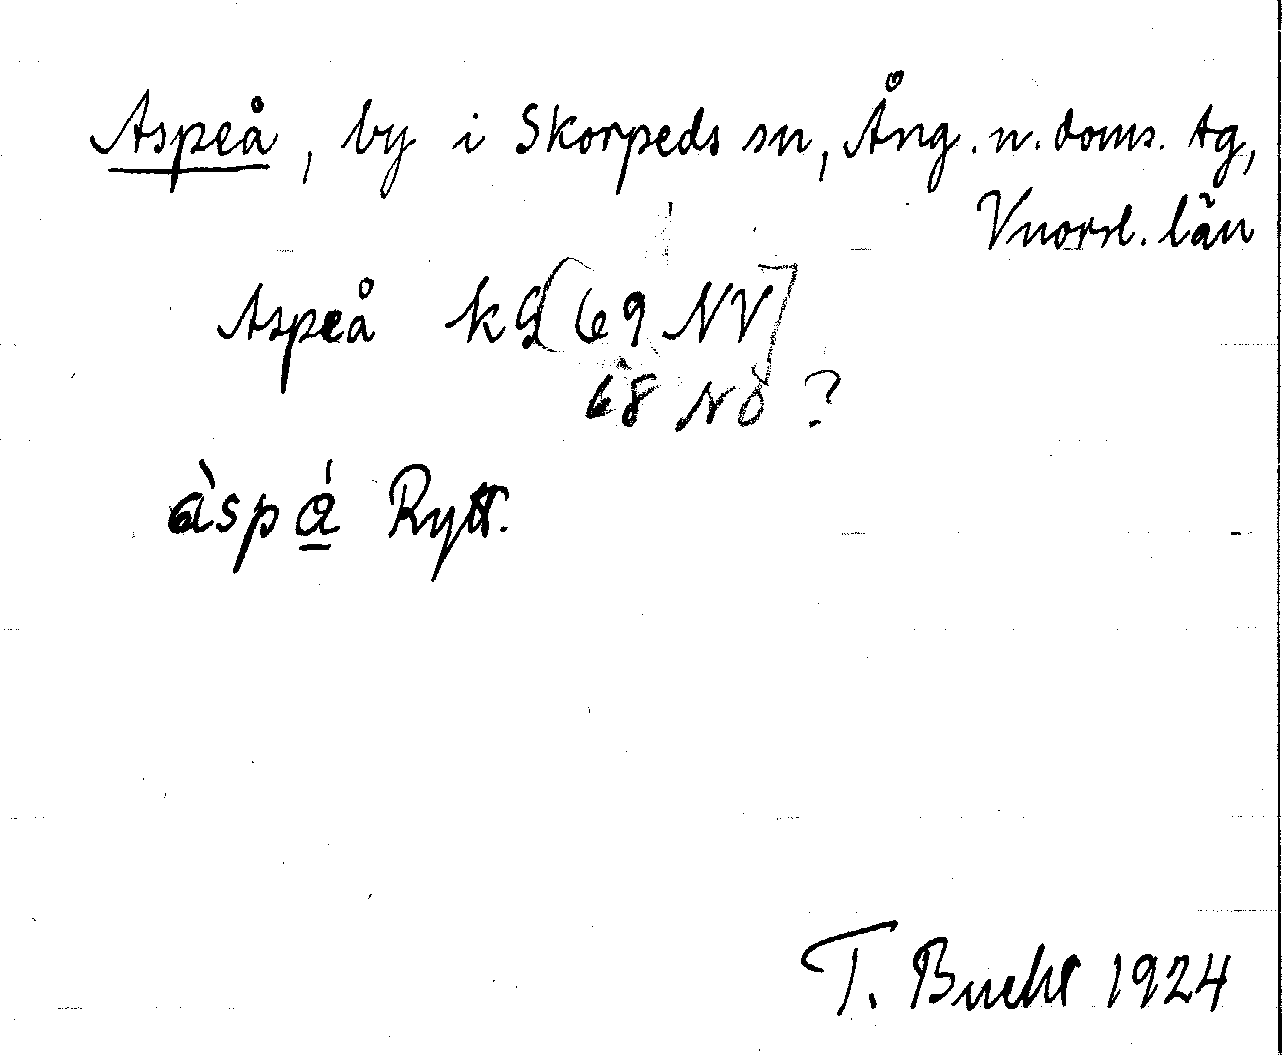 Aspeå, by i Skorpeds sn, Ång. n. doms. tg,
Vnorrl. län
Aspeå kG [69 NV]
68 NÖ ?
àspá Rytt.
T. Bucht 1924